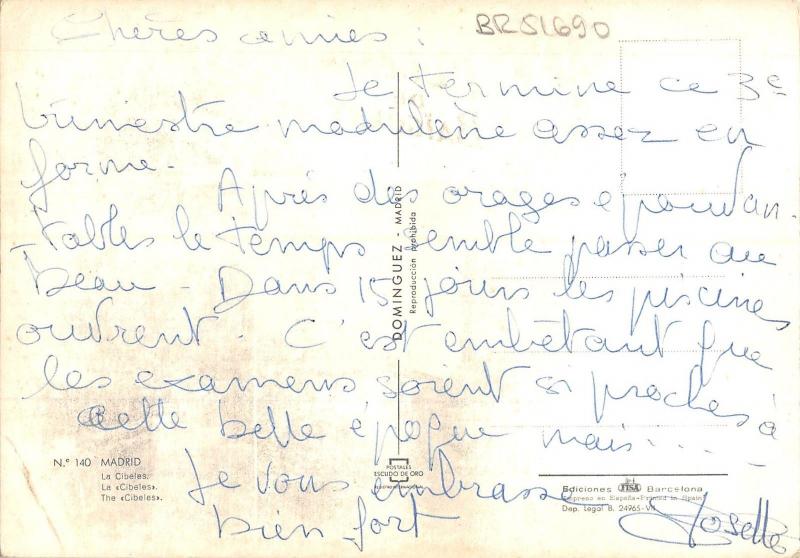 Chères amies :
BR51690
Je termine ce 3e
trimestre madrilène assez en
forme -
Après des orages épouvan-
tables le temps semble passer au
beau - Dans 15 jours les piscines
ouvrent. C'est embêtant que
les examens soient si proches à
cette belle époque mais....
Je vous embrasse
bien fort
Joselle
DOMINGUEZ - MADRID
Reproducción prohibida
N.º 140 MADRID
La Cibeles.
La «Cibeles».
The «Cibeles».
POSTALES
ESCUDO DE ORO
REGISTRO INTERNACIONAL
Ediciones FISA Barcelona
Impreso en España-Printed in Spain
Dep. Legal B. 24965-VII